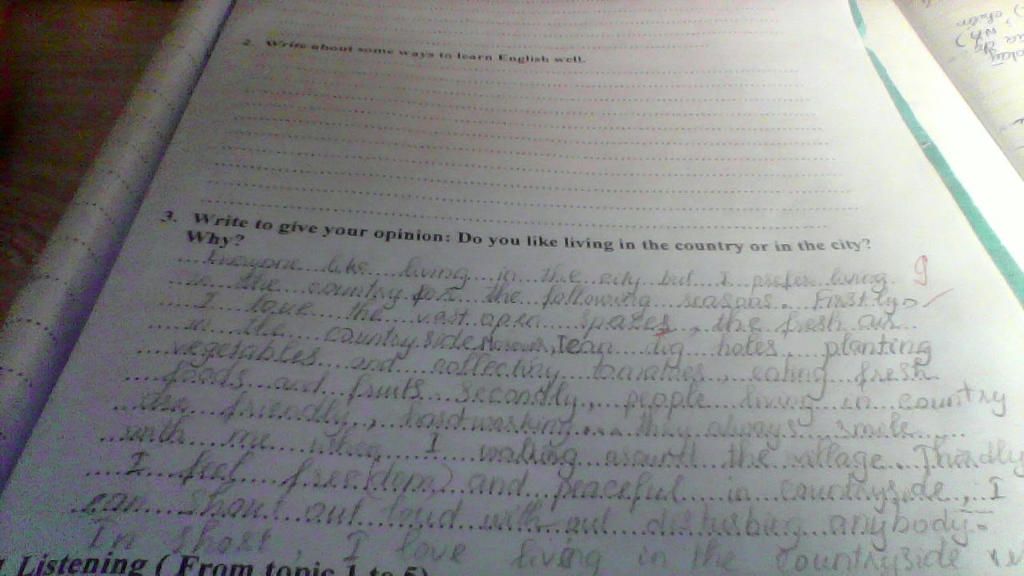 2. Write about some ways to learn English well.
3. Write to give your opinion: Do you like living in the country or in the city?
Why?
Everyone like living in the city but I prefer living 9
in the country for the following reasons. Firstly,
I love the vast open spazes, the fresh air
in the countryside, I can dig holes, planting
vegetables and collecting tomatoes, eating fresh
foods and fruits. Secondly, people living in country
are friendly, hardworking... they always smile
with me when I walking around the village. Thirdly
I feel free(dom) and peaceful in countryside, I
can shout out loud without disturbing anybody.
In short, I love living in the countryside
Listening (From topic 1 to 5)